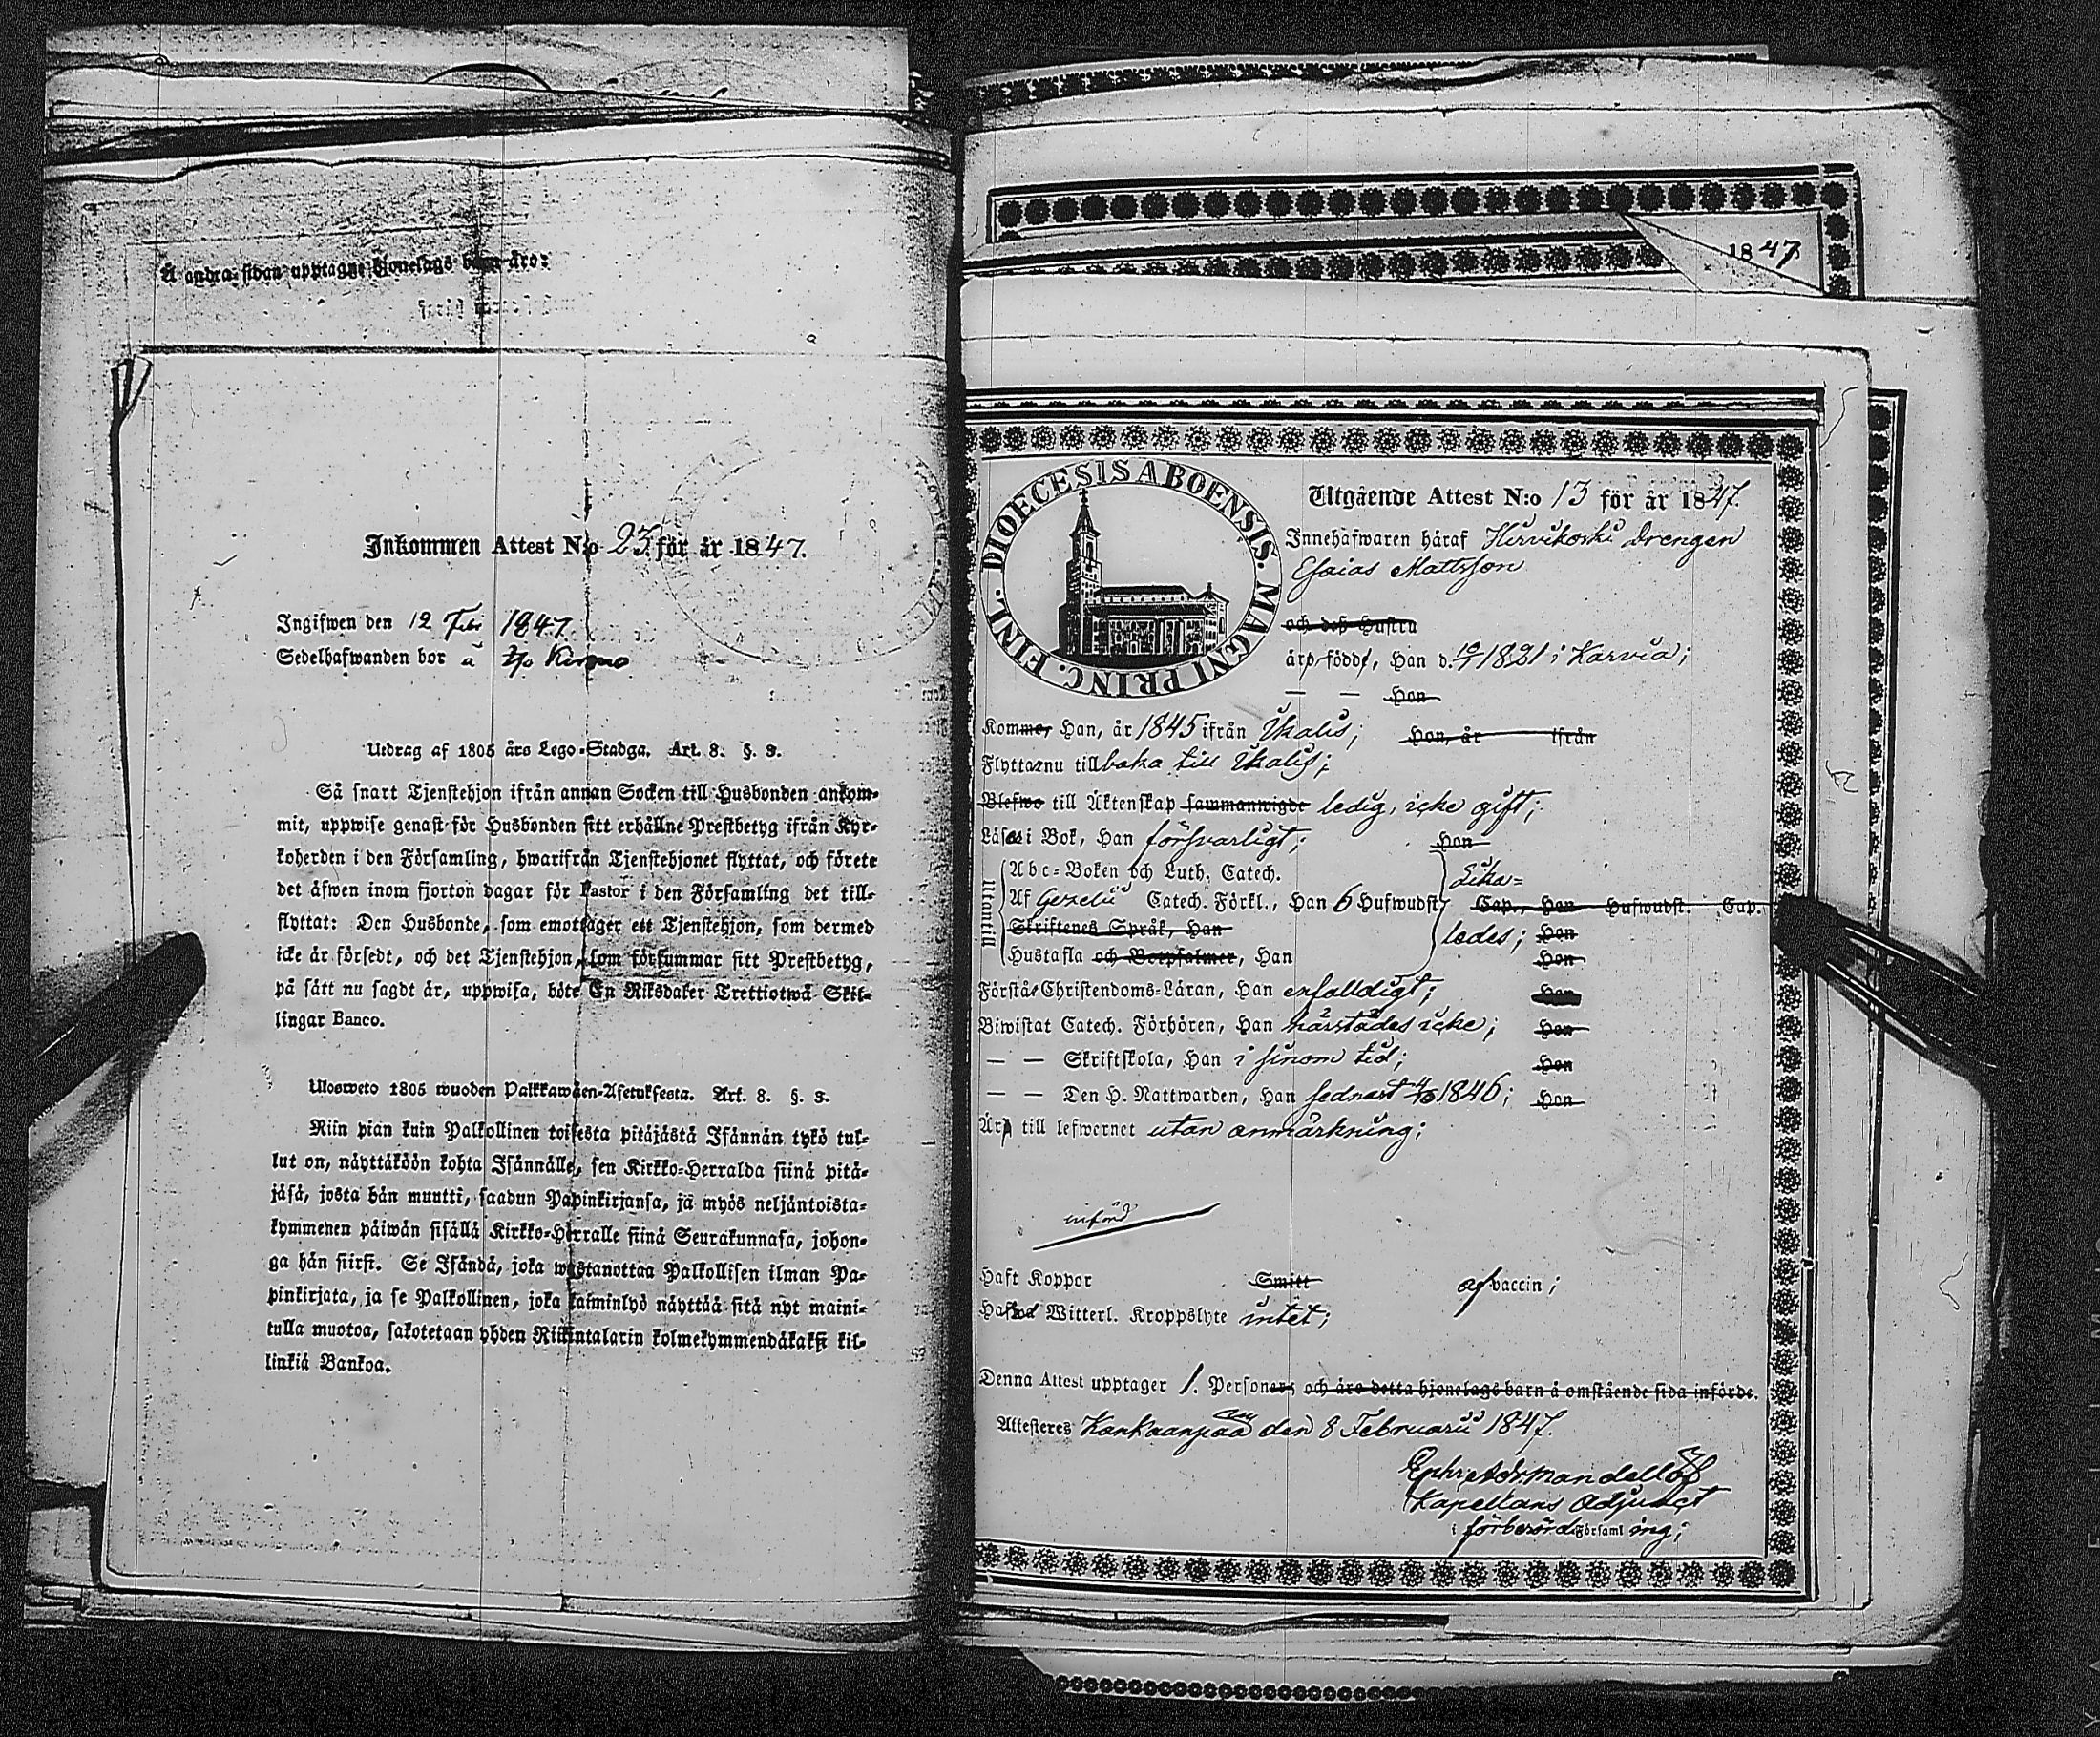 Å andra sidan upptagne hjonelags barn äro:
Inkommen Attest N:o 23 för år 1847.
Ingifwen den 12 Febr 1847
Sedelhafwanden bor å
Utdrag af 1805 års Lego-Stadga. Art. 8. §. 3.
Så snart Tjenstehjon ifrån annan Socken till Husbonden ankom-
mit, uppwise genast för Husbonden sitt erhållne Prestbetyg ifrån Kyr-
koherden i den Församling, hwarifrån Tjenstehjonet flyttat, och förete
det äfwen inom fjorton dagar för Pastor i den Församling det till-
flyttat: Den Husbonde, som emottager ett Tjenstehjon, som dermed
icke är försedt, och det Tjenstehjon, som försummar sitt Prestbetyg,
på sätt nu sagdt är, uppwisa, böte En Riksdaler Trettiotwå Skil-
lingar Banco.
Ulosweto 1805 wuoden Palkkawäen-Asetuksesta. Art. 8. §. 3.
Niin pian kuin Palkollinen toisesta pitäjästä Isännän tykö tul-
lut on, näyttäköön kohta Isännälle, sen Kirkko-Herralda siinä pitä-
jäsä, josta hän muutti, saadun Papinkirjansa, ja myös neljäntoista-
kymmenen päiwän sisällä Kirkko-Herralle siinä Seurakunnasa, johon-
ga hän siirsi. Se Isändä, joka wastanottaa Palkollisen ilman Pa-
pinkirjata, ja se Palkollinen, joka laiminlyö näyttää sitä nyt maini-
tulla muotoa, sakotetaan yhden Riikintalarin kolmekymmendäkaksi kil-
linkiä Bankoa.
1847
DIOECESIS ABOENSIS. MAGNI PRINC. FINL.
Utgående Attest N:o 13 för år 1847.
Innehafwaren häraf Hirvikoski drengen
Esaias Mattsson
och deß Hustru
äro födde, Han d. 1821 i Karvia;
— — Hon
Kommer Han, år 1845 ifrån Ikalis; Hon, år ifrån
Flyttar nu tillbaka till Ikalis;
Blefwo till Äktenskap sammanwigde ledig, icke gift;
Läser i Bok, Han försvarligt; Hon
Utantill
Abc-Boken och Luth. Catech.
Af Gezelii Catech. Förkl., Han 6 Hufwudst. Cap., Hon Hufwudst. Cap.
Lika=
Skriftenes Språk, Han
ledes; Hon
Hustafla och Botpsalmer, Han Hon
Förstår Christendoms-Läran, Han enfalldigt; Hon
Biwistat Catech. Förhören, Han härstädes icke; Hon
— — Skriftskola, Han i sinom tid; Hon
— — Den H. Nattwarden, Han sednast 4/10 1846; Hon
Är till lefwernet utan anmärkning;
införd
Haft Koppor Smitt af vaccin;
Hafwa Witterl. Kroppslyte intet;
Denna Attest upptager 1. Personer; och äro detta hjonelags barn å omstående sida införde.
Attesteres Kankaanpää den 8 Februarii 1847.
Kapellans Adjunct
i förberörd Församling;